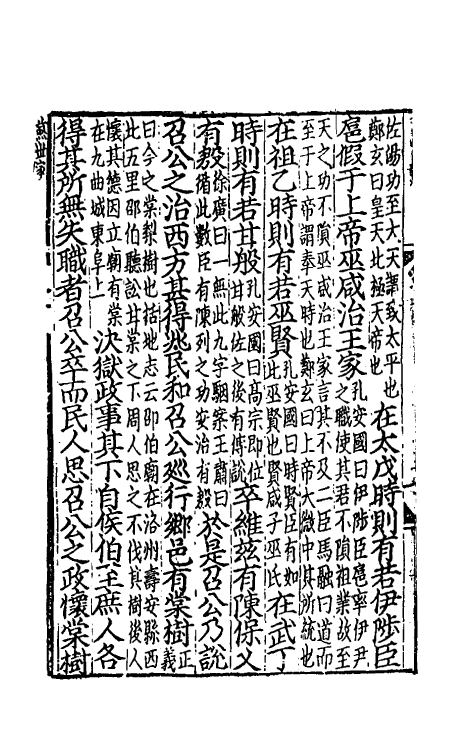 佐湯功至大天謂致太平也
鄭玄曰皇天北極天帝也
在太戊時則有若伊陟臣
扈假于上帝巫咸治王家
孔安國曰伊陟臣扈率伊尹
之職使其君不隕祖業故至
天之功不隕巫咸治王家言其不及二臣馬融曰道而
至于上帝謂奉天時也鄭玄曰上帝太微中其所統也
在祖乙時則有若巫賢
孔安國曰時賢臣有如
此巫賢也賢咸子巫氏
在武丁
時則有若甘般
孔安國曰高宗即位
甘般佐之後有傅說
率維茲有陳保乂
有殷
徐廣曰一無此九字駰案王肅曰
循此數臣有陳列之功安治有殷
於是召公乃說
召公之治西方甚得兆民和召公巡行鄉邑有棠樹
正
義
曰今之棠梨樹也括地志云邵伯廟在洛州壽安縣西
北五里邵伯聽訟甘棠之下周人思之不伐其樹後人
懷其德因立廟有棠
在九曲城東阜上
決獄政事其下自侯伯至庶人各
得其所無失職者召公卒而民人思召公之政懷棠樹
燕世家